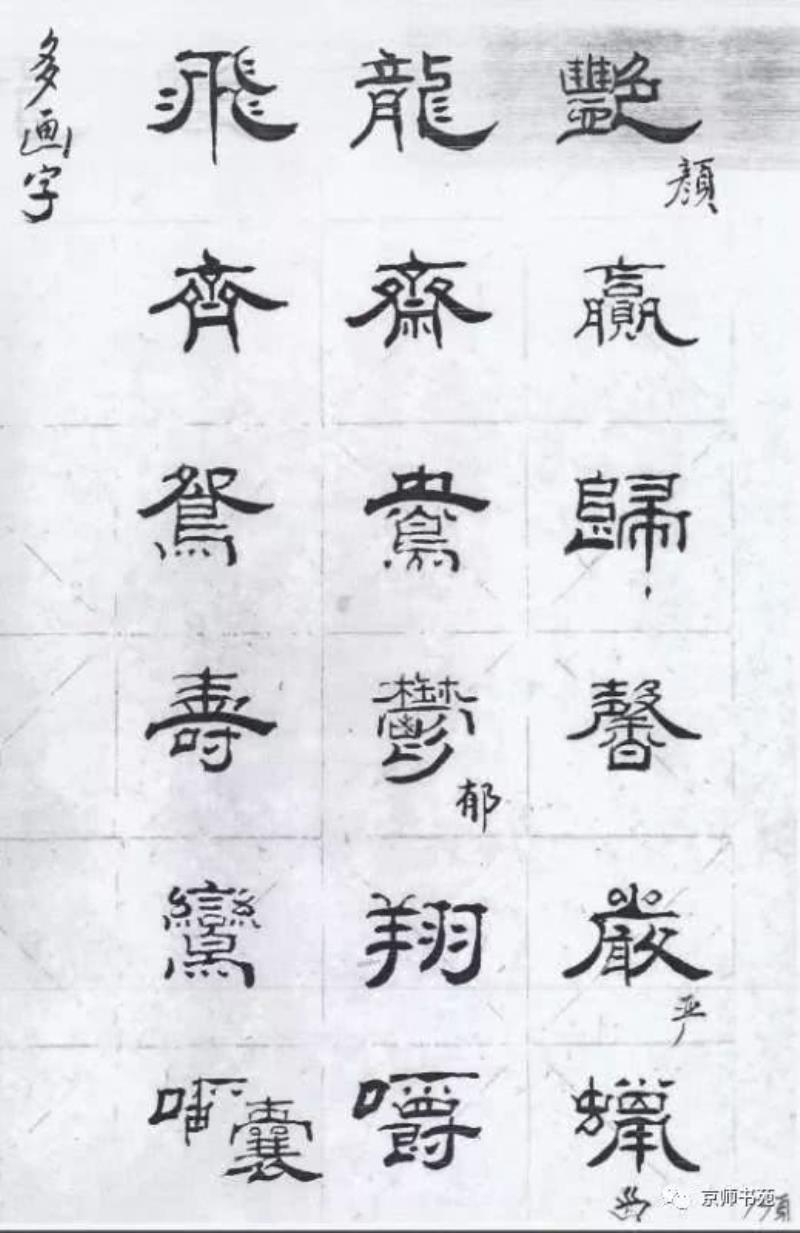 多画字
飛 龍 艷
顔
齊 齋 贏
鴛 鴦 歸
壽 鬱 馨
郁
鸞 翔 嚴
严
囊 嚼 蠟
京师书苑